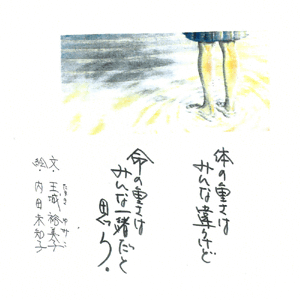 体の重さは
みんな違うけど
命の重さは
みんな一緒だと
思う。
文・玉城 裕美子
たまき ゆみこ
絵・内田 木知子